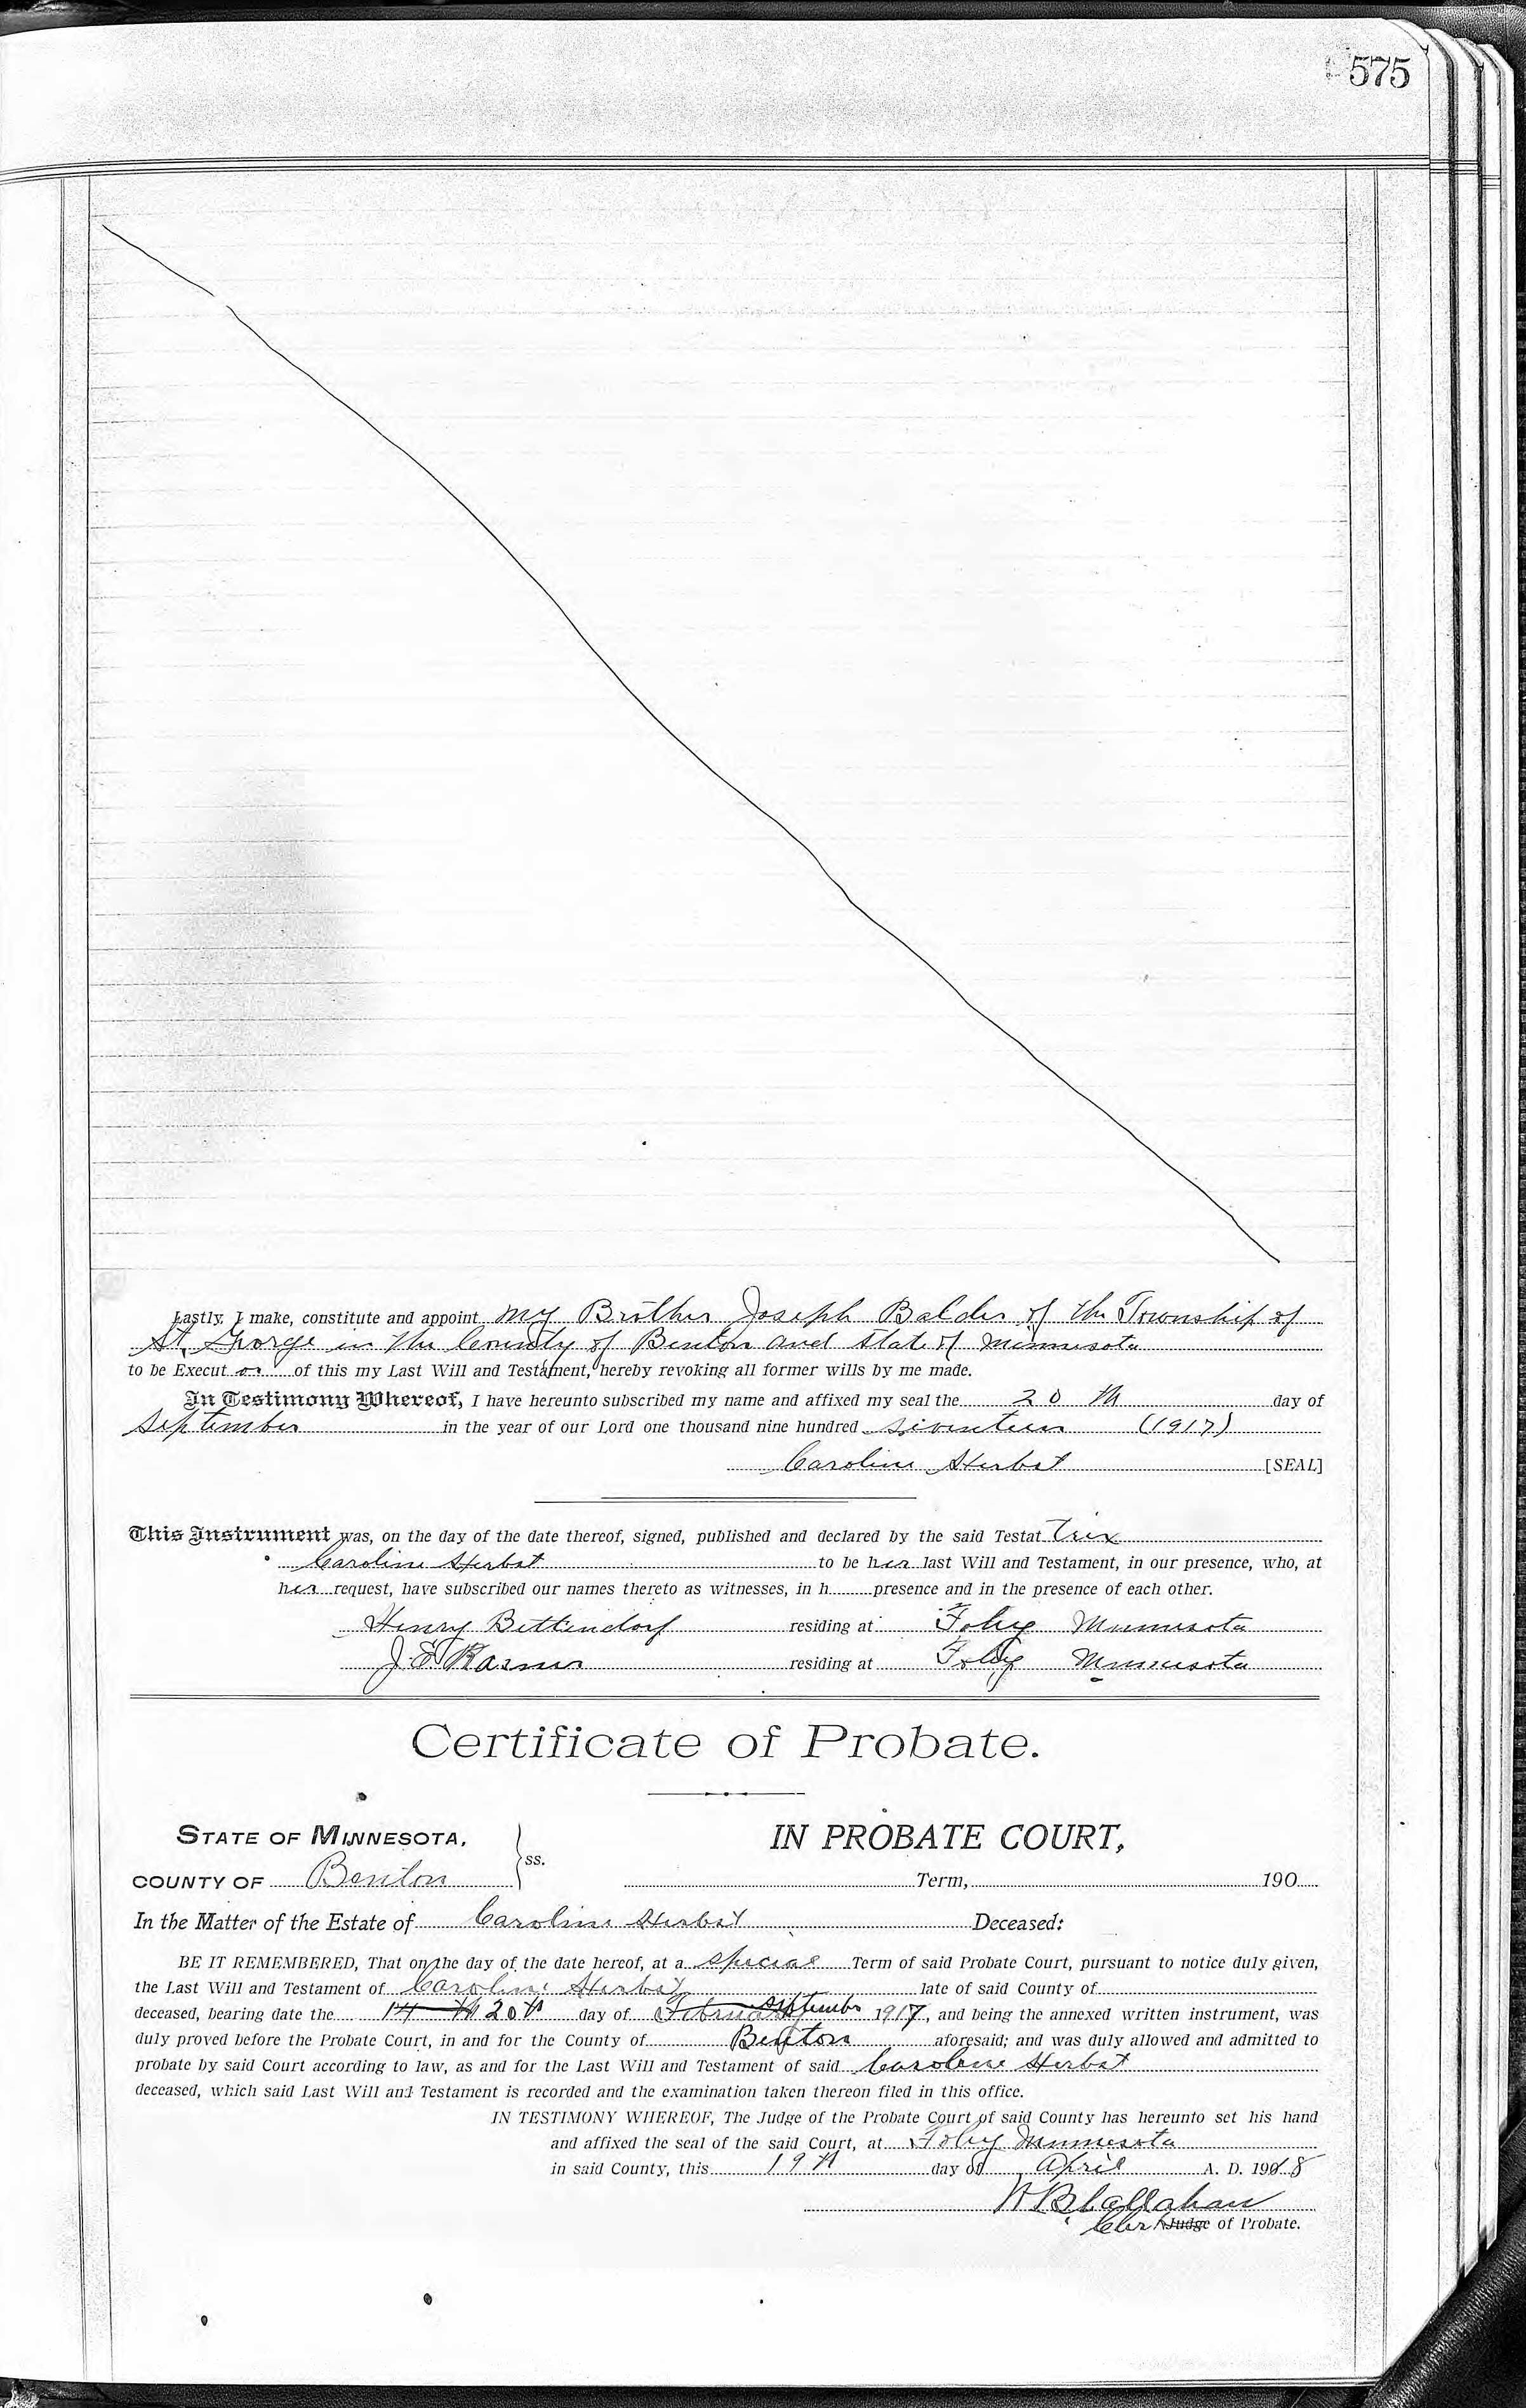 575
Lastly, I make, constitute and appoint my Brother Joseph Balder of the Township of
St. Gorge in the County of Benton and State of Minnesota
to be Execut or of this my Last Will and Testament, hereby revoking all former wills by me made.
In Testimony Whereof, I have hereunto subscribed my name and affixed my seal the 20 th day of
September in the year of our Lord one thousand nine hundred seventeen (1917)
Caroline Herbst [SEAL]
This Instrument was, on the day of the date thereof, signed, published and declared by the said Testat trix
Caroline Herbst to be her last Will and Testament, in our presence, who, at
her request, have subscribed our names thereto as witnesses, in h presence and in the presence of each other.
Henry Bettendorf residing at Foley Minnesota
J. E. Kasner residing at Foley Minnesota
Certificate of Probate.
STATE OF MINNESOTA, IN PROBATE COURT,
ss.
COUNTY OF Benton Term, 190
In the Matter of the Estate of Caroline Herbst Deceased:
BE IT REMEMBERED, That on the day of the date hereof, at a special Term of said Probate Court, pursuant to notice duly given,
the Last Will and Testament of Caroline Herbst late of said County of
deceased, bearing date the 14 th 20th day of February September 1917, and being the annexed written instrument, was
duly proved before the Probate Court, in and for the County of Benton aforesaid; and was duly allowed and admitted to
probate by said Court according to law, as and for the Last Will and Testament of said Caroline Herbst
deceased, which said Last Will and Testament is recorded and the examination taken thereon filed in this office.
IN TESTIMONY WHEREOF, The Judge of the Probate Court of said County has hereunto set his hand
and affixed the seal of the said Court, at Foley Minnesota
in said County, this 19th day of April A. D. 1918
W B Callahan
Clerk Judge of Probate.